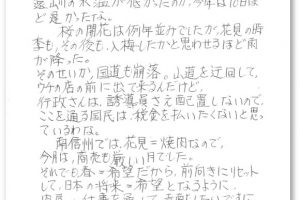 遠山川の水温が低かったか、今年は10日ほ
ど遅かったな。
桜の開花は例年並みでしたが、花見の時
季も、その後も、入梅したかと思わせるほど雨
が降った。
そのせいか、国道も崩落。山道を迂回して、
ウチの店の前に出て来るんだけど、
行政さんは、誘導員さえ配置しないので、
ここを通る国民は、税金を払いたくないと思っ
ているわな。
南信州では、花見=焼肉なので、
今月は、商売も厳しい月でした。
それでも春=希望だから、前向きにリセット
して、日本の将来=希望となるように、